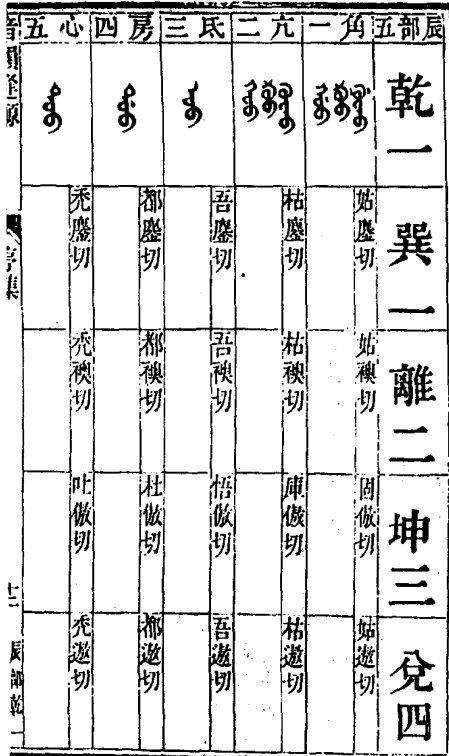 辰部五 乾一 巽一 離二 坤三 兌四
角一 姑鏖切 姑襖切 固傲切 姑遨切
亢二 枯鏖切 枯襖切 庫傲切 枯遨切
氐三 吾鏖切 吾襖切 悟傲切 吾遨切
房四 都鏖切 都襖切 杜傲切 都遨切
心五 禿鏖切 禿襖切 吐傲切 禿遨切
音韻逢源 集 辰部乾一